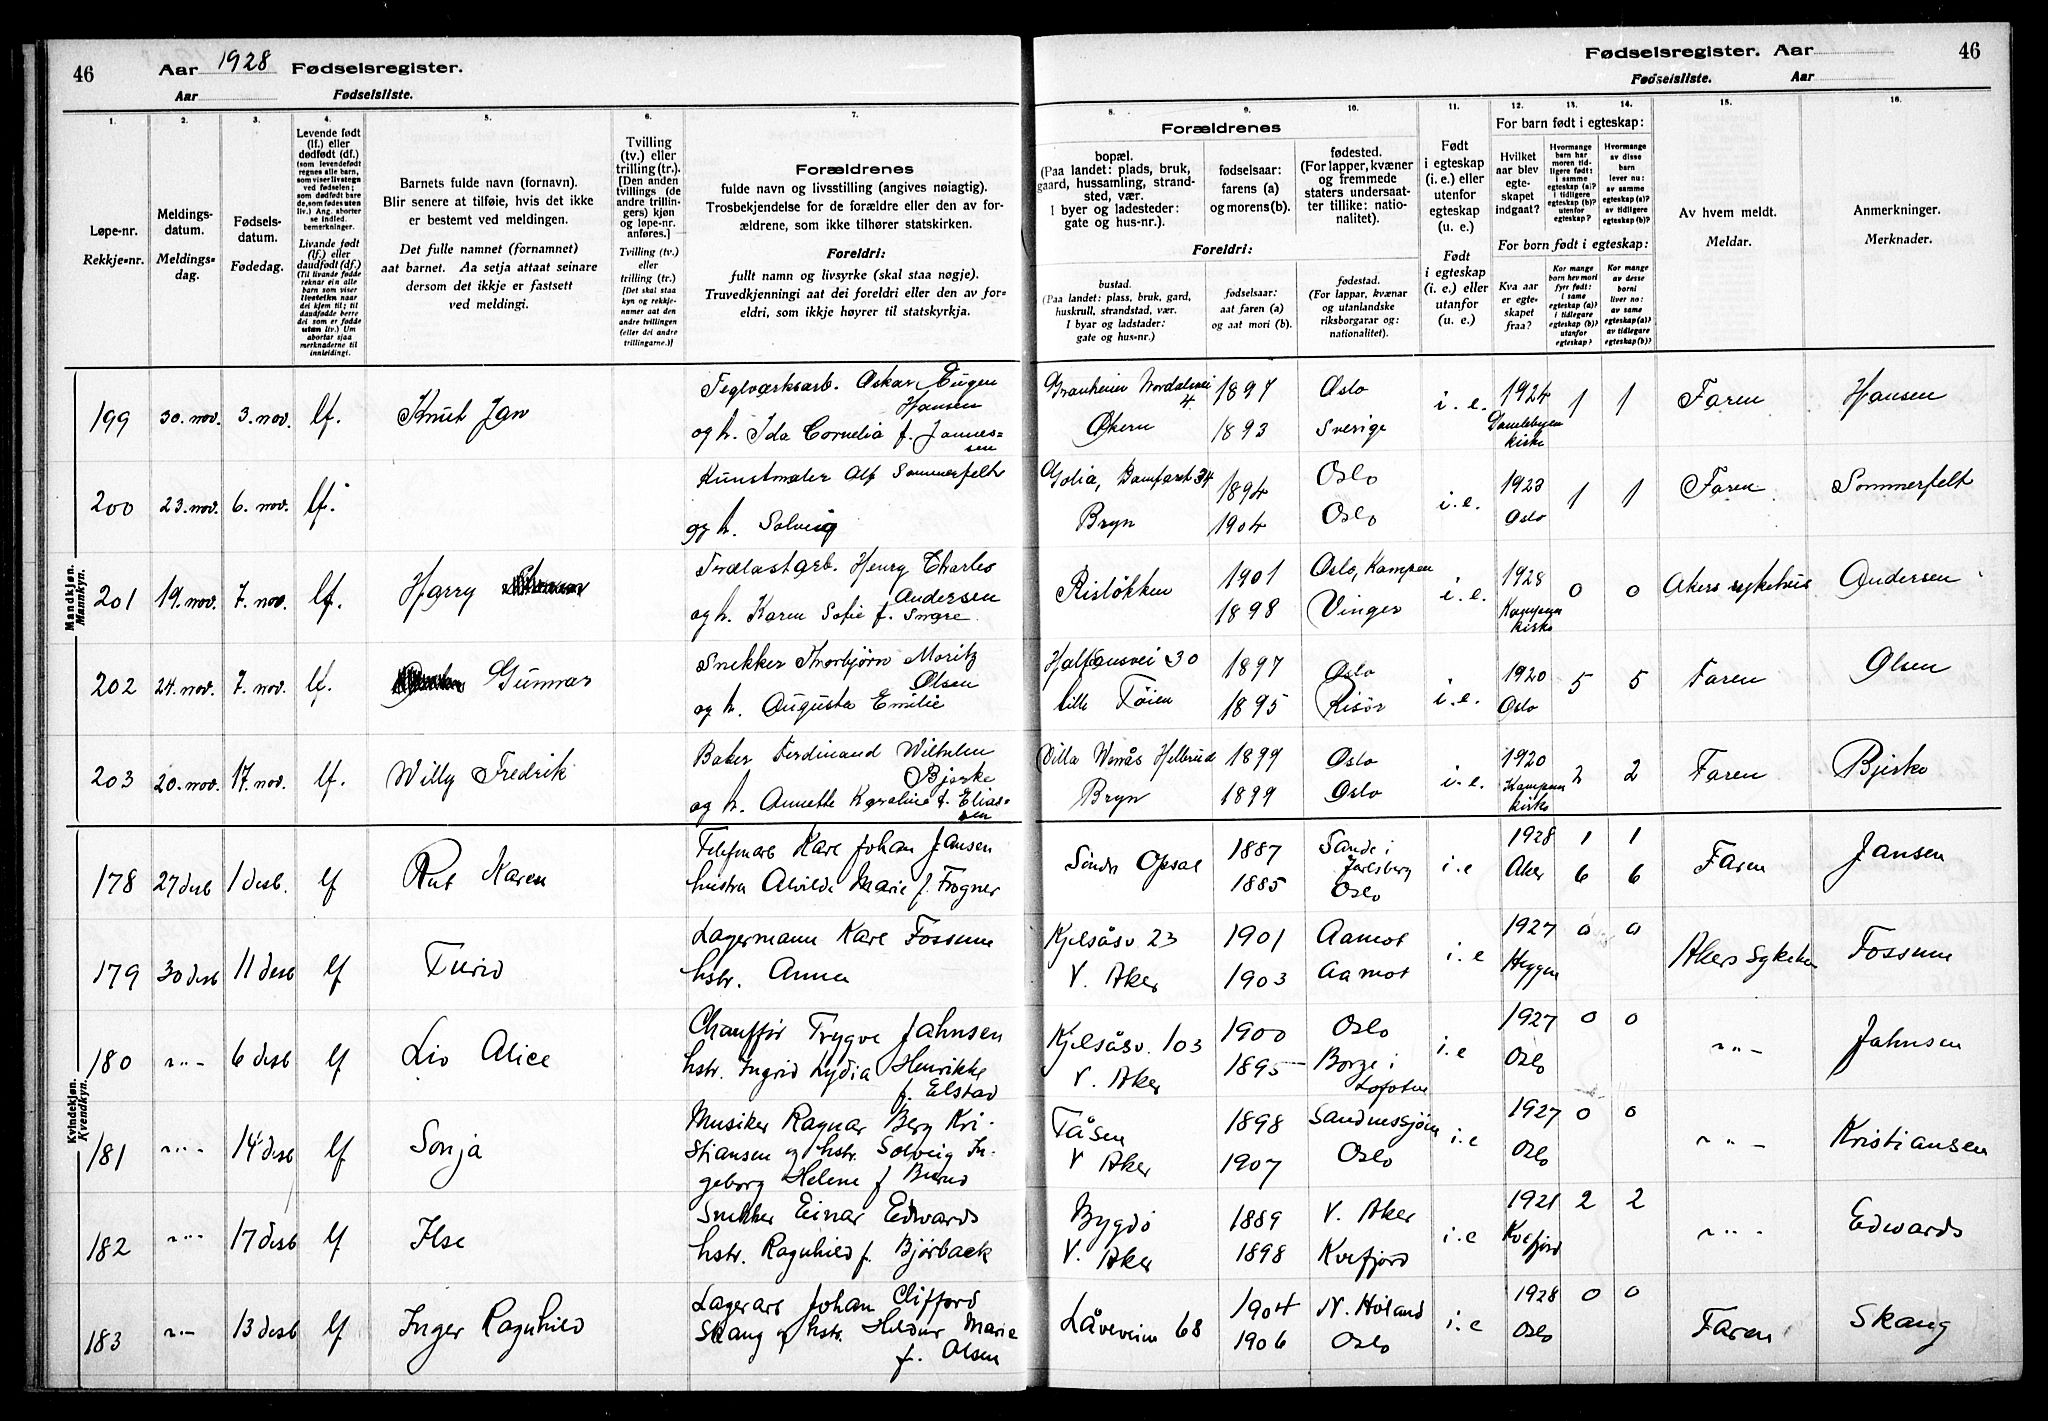 46
Aar 1928 Fødselsregister.
Aar Fødselsliste.
Fødselsregister. Aar
46
Fødselsliste. Aar
1. 2. 3. 4. 5. 6. 7. 8. 9. 10. 11. 12. 13. 14. 15. 16.
Løpe-nr.
Rekkje=nr.
Meldings-
datum.
Meldings=
dag.
Fødsels-
datum.
Fødedag.
Levende født
(lf.) eller
dødfødt (df.)
(som levendefødt
regnes alle barn,
som viser livstegn
ved fødselen;
som dødfødt bare
de, som fødes uten
liv.) Ang. aborter
se indled.
bemerkninger.
Livande født
(lf.) eller
daudfødt (df.)
(Til livande fødde
reknar ein alle
barn som viser
livsteikn naar
dei kjem til; til
daudfødde berre
dei som er fødde
utan liv.) Um
abortar sjaa
merknaderne til
innleidingi.
Barnets fulde navn (fornavn).
Blir senere at tilføie, hvis det ikke
er bestemt ved meldingen.
Det fulle namnet (fornamnet)
aat barnet. Aa setja attaat seinare
dersom det ikkje er fastsett
ved meldingi.
Tvilling
(tv.) eller
trilling (tr.).
[Den anden
tvillings (de
andre trillin-
gers) kjøn
og løpe-nr.
anføres.]
Tvilling (tv.)
eller
trilling (tr.)
[Det skal staa
kyn og rekkje-
numer aat den
andre tvillingen
(eller dei andre
trillingarne.)]
Forældrenes
fulde navn og livsstilling (angives nøiagtig).
Trosbekjendelse for de forældre eller den av for-
ældrene, som ikke tilhører statskirken.
Foreldri:
fullt namn og livsyrke (skal staa nøgje).
Truvedkjenningi aat dei foreldri eller den av for=
eldri, som ikkje høyrer til statskyrkja.
Forældrenes
bopæl.
(Paa landet: plads, bruk,
gaard, hussamling, strand-
sted, vær.
I byer og ladesteder:
gate og hus-nr.).
fødselsaar:
farens (a)
og morens (b).
fødested.
(For lapper, kvæner
og fremmede
staters undersaat-
ter tillike: natio-
nalitet).
Foreldri:
bustad.
(Paa landet: plass, bruk, gard,
huskrull, strandstad, vær.
I byar og ladstader:
gate og hus-nr.)
fødselsaar:
aat faren (a)
og aat mori (b).
fødestad.
(For lappar, kvænar
og utanlandske
riksborgarar og:
nationalitet).
Født
i egteskap
(i. e.) eller
utenfor
egteskap
(u. e.)
Født
i egteskap
(i. e.) eller
utanfor
(u. e.)
For barn født i egteskap:
Hvilket
aar blev
egte-
skapet
indgaat?
Hvormange
barn har
moren tid-
ligere født:
i samme
egteskap (a)?
i tidligere
egteskap (b)?
utenfor
egteskap?
Hvormange
av disse
barn
lever nu:
av samme
egteskap (a)?
av tidligere
egteskap (b)?
For born født i egteskap:
Kva aar
er egte-
skapet
fraa?
Kor mange
born hev mori
fyrr født:
i same
egteskap (a)?
i tidlegare
egteskap (b)?
utanfor
egteskap?
Kor mange
av desse
borni
liver no:
av same
egteskap (a)?
av tidlegare
egteskap (b)?
Av hvem meldt.
Meldar.
Anmerkninger.
Merknader.
Mandkjøn.
Mannkyn.
199 30. nov. 3. nov. lf. Knut Jan
Teglverksarb. Oskar Eugen
Hansen
og h. Ida Cornelia f. Johannes=
sen
4 Økern
1897 Oslo
1893 Sverige
i. e. 1924
Gamlebyen
kirke
1 1 Faren Hansen
200 23. nov. 6. nov. lf.
Kunstmaler Alf Sommerfelt
og h. Solveig
34
Bryn
1894 Oslo
1904 Oslo
i. e. 1923
Oslo
1 1 Faren Sommerfelt
201 19. nov. 7. nov. lf. Harry
Trælastarb. Henry Charles
Andersen
og h. Karen Sofie f. Snare
Risløkken
1901 Oslo, Kampen
1898 Vinger
i. e. 1928
Kampen
kirke
0 0 Akers sykehus Andersen
202 24. nov. 7. nov. lf. Gunnar
Snekker Thorbjørn Moritz
Olsen
og h. Augusta Emilie
Halfdansvei 30
lille Tøien
1897 Oslo
1895 Risør
i. e. 1920
Oslo
5 5 Faren Olsen
203 20. nov. 17. nov. lf. Willy Fredrik
Baker Ferdinand Wilhelm
Bjerke
og h. Annette Karoline f. Elias=
sen
Villa Hellerud
Bryn
1899 Oslo
1899 Oslo
i. e. 1920
Kampen
kirke
2 2 Faren Bjerke
Kvindekjøn.
Kvendkyn.
178 27 desb 1 desb. lf Rut Karen
Telefonarb Karl Johan Jansen
hustru Alvilde Marie f. Frogner
Søndre Opsal
1887 Sande i
Jarlsberg
1885 Oslo
i. e 1928
Aker
1 1
6 6
Faren Jansen
179 30 desb 11 desb lf Turid
Lagermann Karl Fossum
hstr. Anna
Kjelsåsv 23
V. Aker
1901 Aamot
1903 Aamot
i. e 1927
Heggen
0 0 Akers sykehus Fossum
180 -"- 6 desb lf Liv Alice
Chauffør Trygve Jahnsen
hstr. Ingrid Lydia Henrikke
f. Elstad
Kjelsåsv. 103
V. Aker
1900 Oslo
1895 Borge i
Lofoten
i. e 1927
Oslo
0 0 -"- Jahnsen
181 -"- 14 desb lf Sonja
Musiker Ragnar Berg Kri-
stiansen og hstr. Solveig In-
geborg Helene f
Tåsen
V Aker
1898 Sandnessjøen
1907 Oslo
i. e 1927
Oslo
0 0 -"- Kristiansen
182 -"- 17 desb lf Ilse
Snekker Einar Edwards
hstr. Ragnhild f. Bjørbæck
Bygdø
V. Aker
1889 V. Aker
1898 Kvefjord
i. e 1921
Kvefjord
2 2 -"- Edwards
183 -"- 13 desb lf Inger Ragnhild
Lagerarb Johan Clifford
Skaug og hstr. Hildur Marie
f. Olsen
Låveveien 68
1904 N. Høland
1906 Oslo
i. e 1928
Oslo
0 0 Faren Skaug